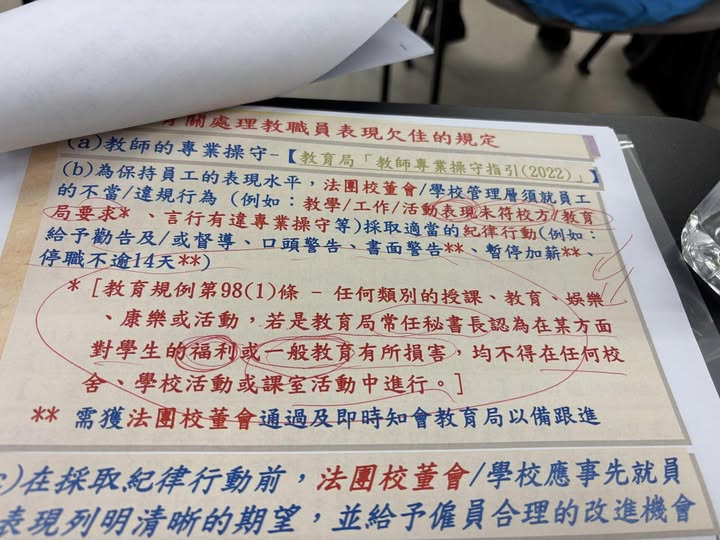 有關處理教職員表現欠佳的規定
(a)教師的專業操守-【教育局「教師專業操守指引(2022)」】
(b)為保持員工的表現水平，法團校董會/學校管理層須就員工
的不當/違規行為 (例如：教學/工作/活動表現未符校方/教育
局要求*、言行有違專業操守等)採取適當的紀律行動(例如：
給予勸告及/或督導、口頭警告、書面警告**、暫停加薪**、
停職不逾14天**)
* [教育規例第98(1)條 - 任何類別的授課、教育、娛樂
、康樂或活動，若是教育局常任秘書長認為在某方面
對學生的福利或一般教育有所損害，均不得在任何校
舍、學校活動或課室活動中進行。]
** 需獲法團校董會通過及即時知會教育局以備跟進
c)在採取紀律行動前，法團校董會/學校應事先就員
表現列明清晰的期望，並給予僱員合理的改進機會